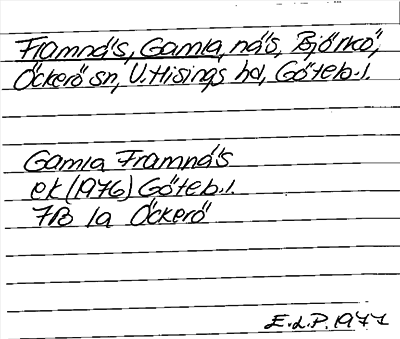 Framnäs, Gamla, näs, Björkö,
Öckerö sn, V. Hisings hd, Göteb. l.
Gamla Framnäs
ek (1976) Göteb. l.
7B 1a Öckerö
E.L.P. 1977